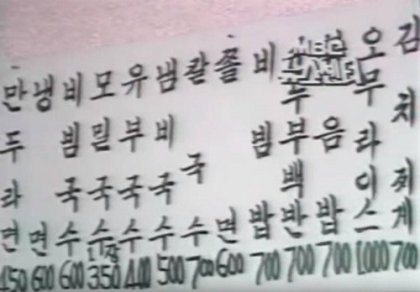 만두라면 450
냉면 600
비빔국수 600
모밀국수 350
유부국수 400
냄비국수 500
칼국수 700
쫄면 600
비빔밥 700
두부백반 700
음밥 700
오무라이스 1000
김치찌게 700
MBC